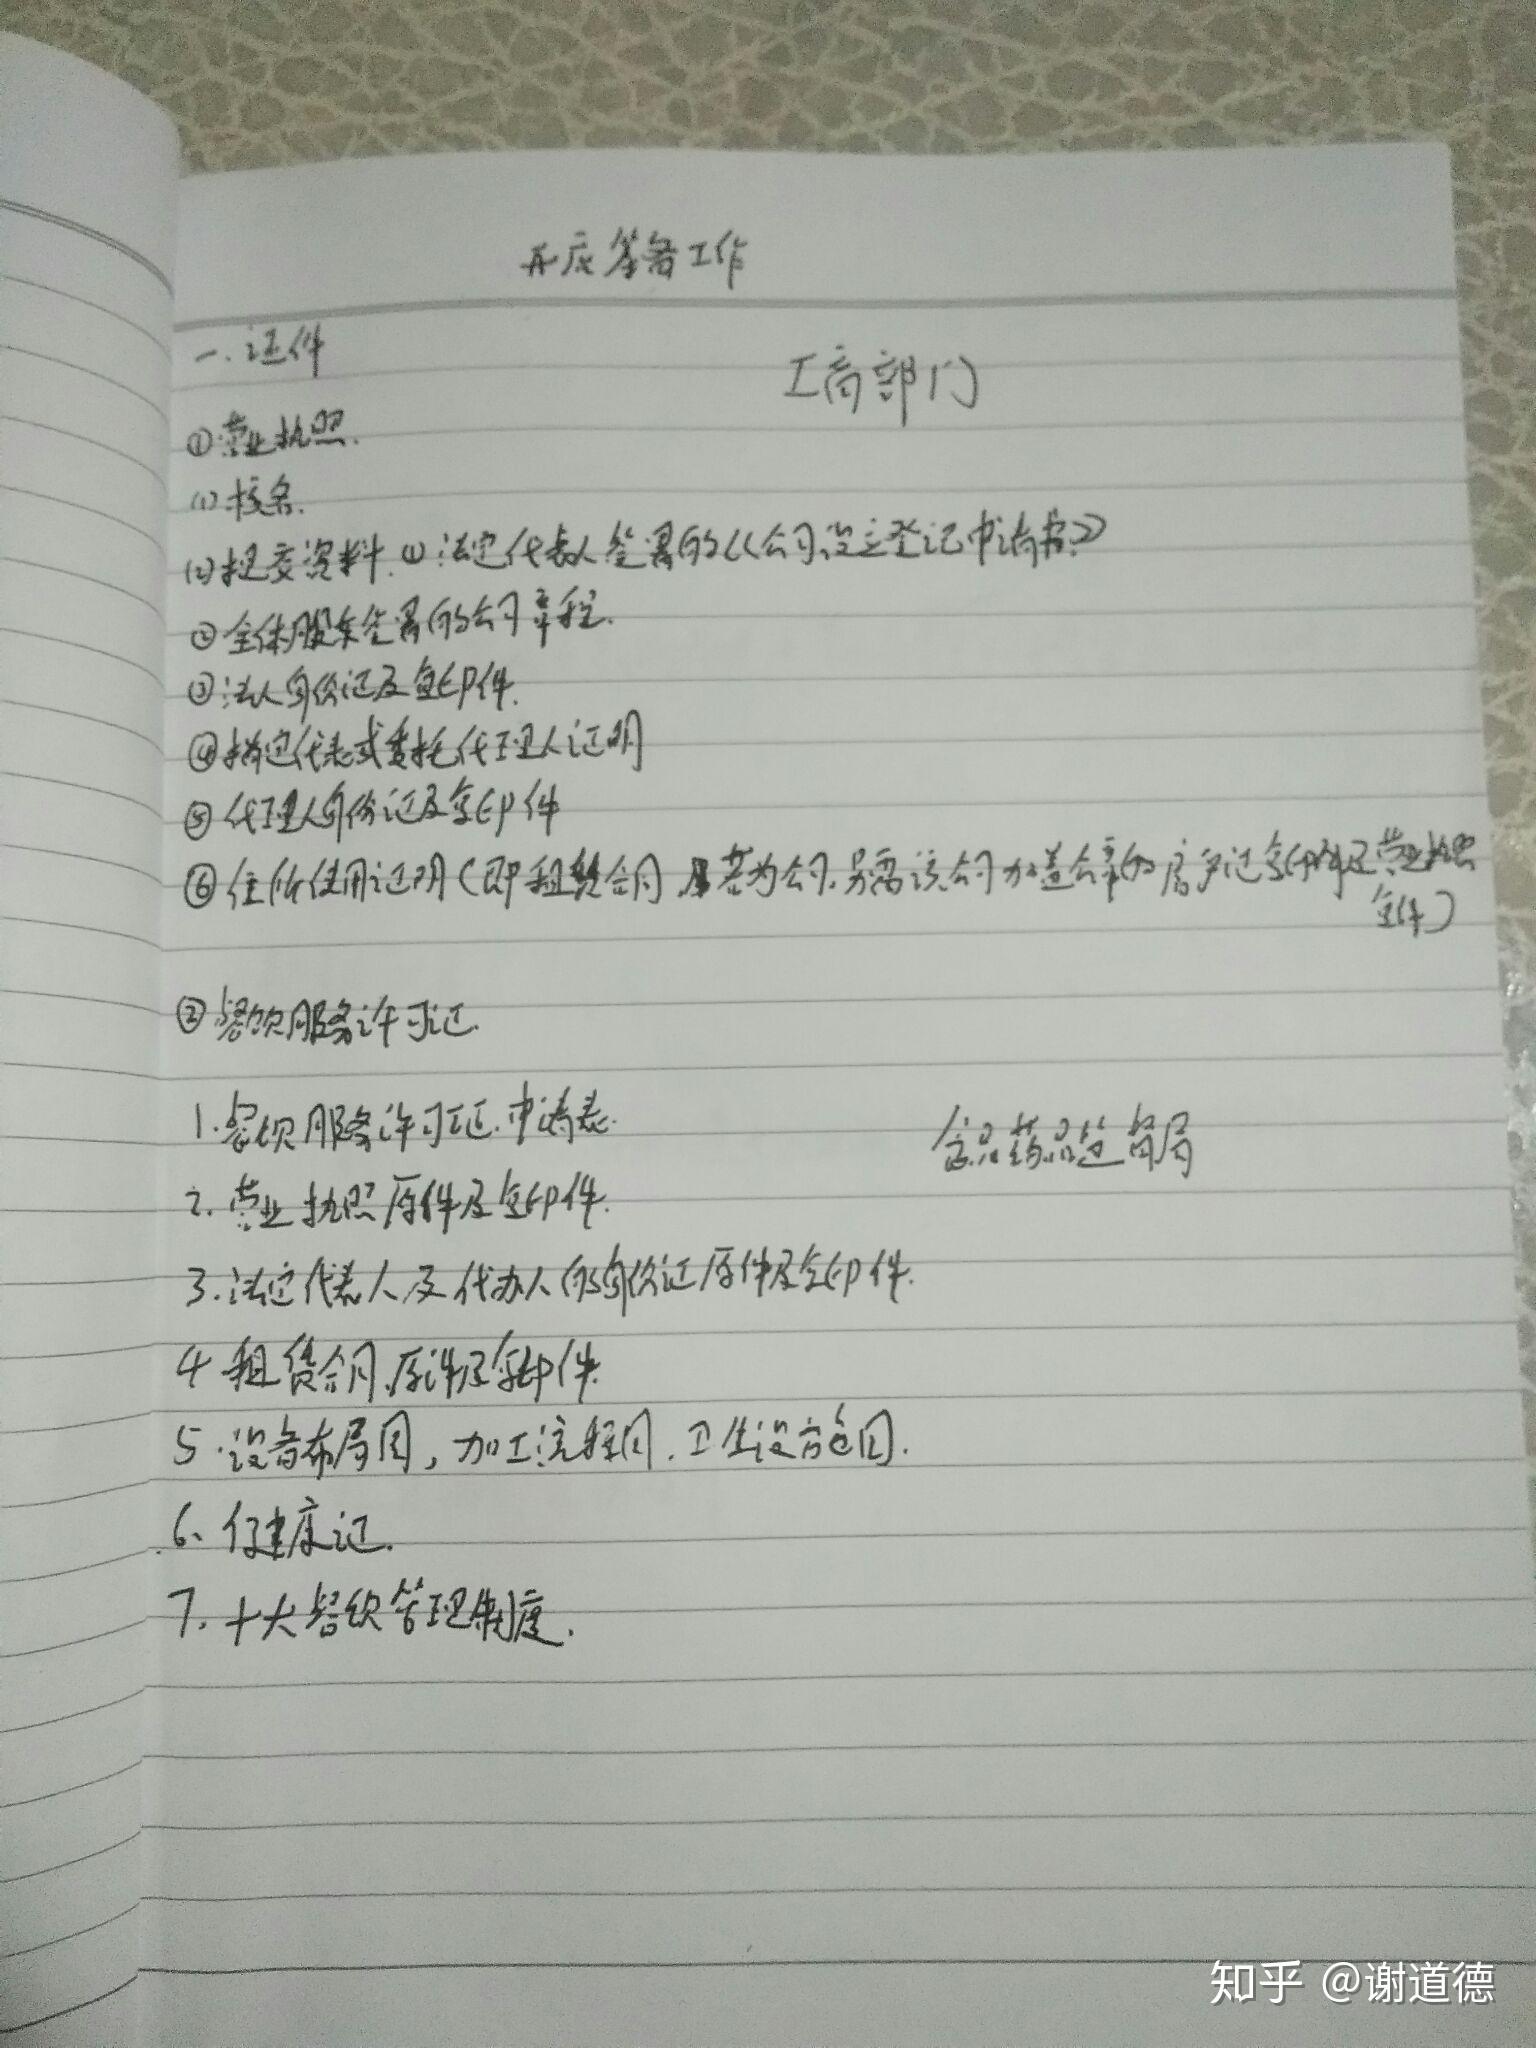 开店筹备工作
一.证件
工商部门
①营业执照.
(1)核名.
(2)提交资料.①法定代表人签署的《公司设立登记申请书》
②全体股东签署的公司章程.
③法人身份证及复印件.
④指定代表或委托代理人证明
⑤代理人身份证及复印件
⑥住所使用证明(即租赁合同 若为公司,另需该公司加盖公章的房产证复印件及营业执照
复件)
②餐饮服务许可证.
1.餐饮服务许可证.申请表.
食品药品监督局
2.营业执照原件及复印件.
3.法定代表人及代办人的身份证原件及复印件.
4 租赁合同.原件及复印件.
5.设备布局图,加工流程图.卫生设施图.
6、健康证.
7.十大餐饮管理制度.
知乎 @谢道德